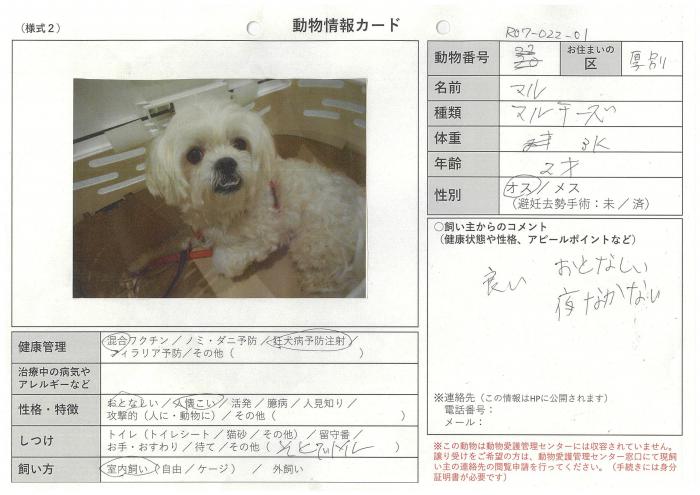 (様式2)
動物情報カード
R07-022-01
動物番号
お住まいの
区
厚別
名前
マル
種類
マルチーズ
体重
3K
年齢
2才
性別
オス/メス
(避妊去勢手術:未/済)
○飼い主からのコメント
(健康状態や性格、アピールポイントなど)
良い おとなしい
夜なかない
※連絡先(この情報はHPに公開されます)
電話番号:
メール:
※この動物は動物愛護管理センターには収容されていません。
譲り受けをご希望の方は、動物愛護管理センター窓口にて現飼
い主の連絡先の閲覧申請を行ってください。(手続きには身分
証明書が必要です)
健康管理
混合ワクチン/ノミ・ダニ予防/狂犬病予防注射/
フィラリア予防/その他( )
治療中の病気や
アレルギーなど
性格・特徴
おとなしい/人懐こい/活発/臆病/人見知り/
攻撃的(人に・動物に)/その他( )
しつけ
トイレ(トイレシート/猫砂/その他)/留守番/
お手・おすわり/待て/その他( )
飼い方
室内飼い(自由/ケージ) / 外飼い